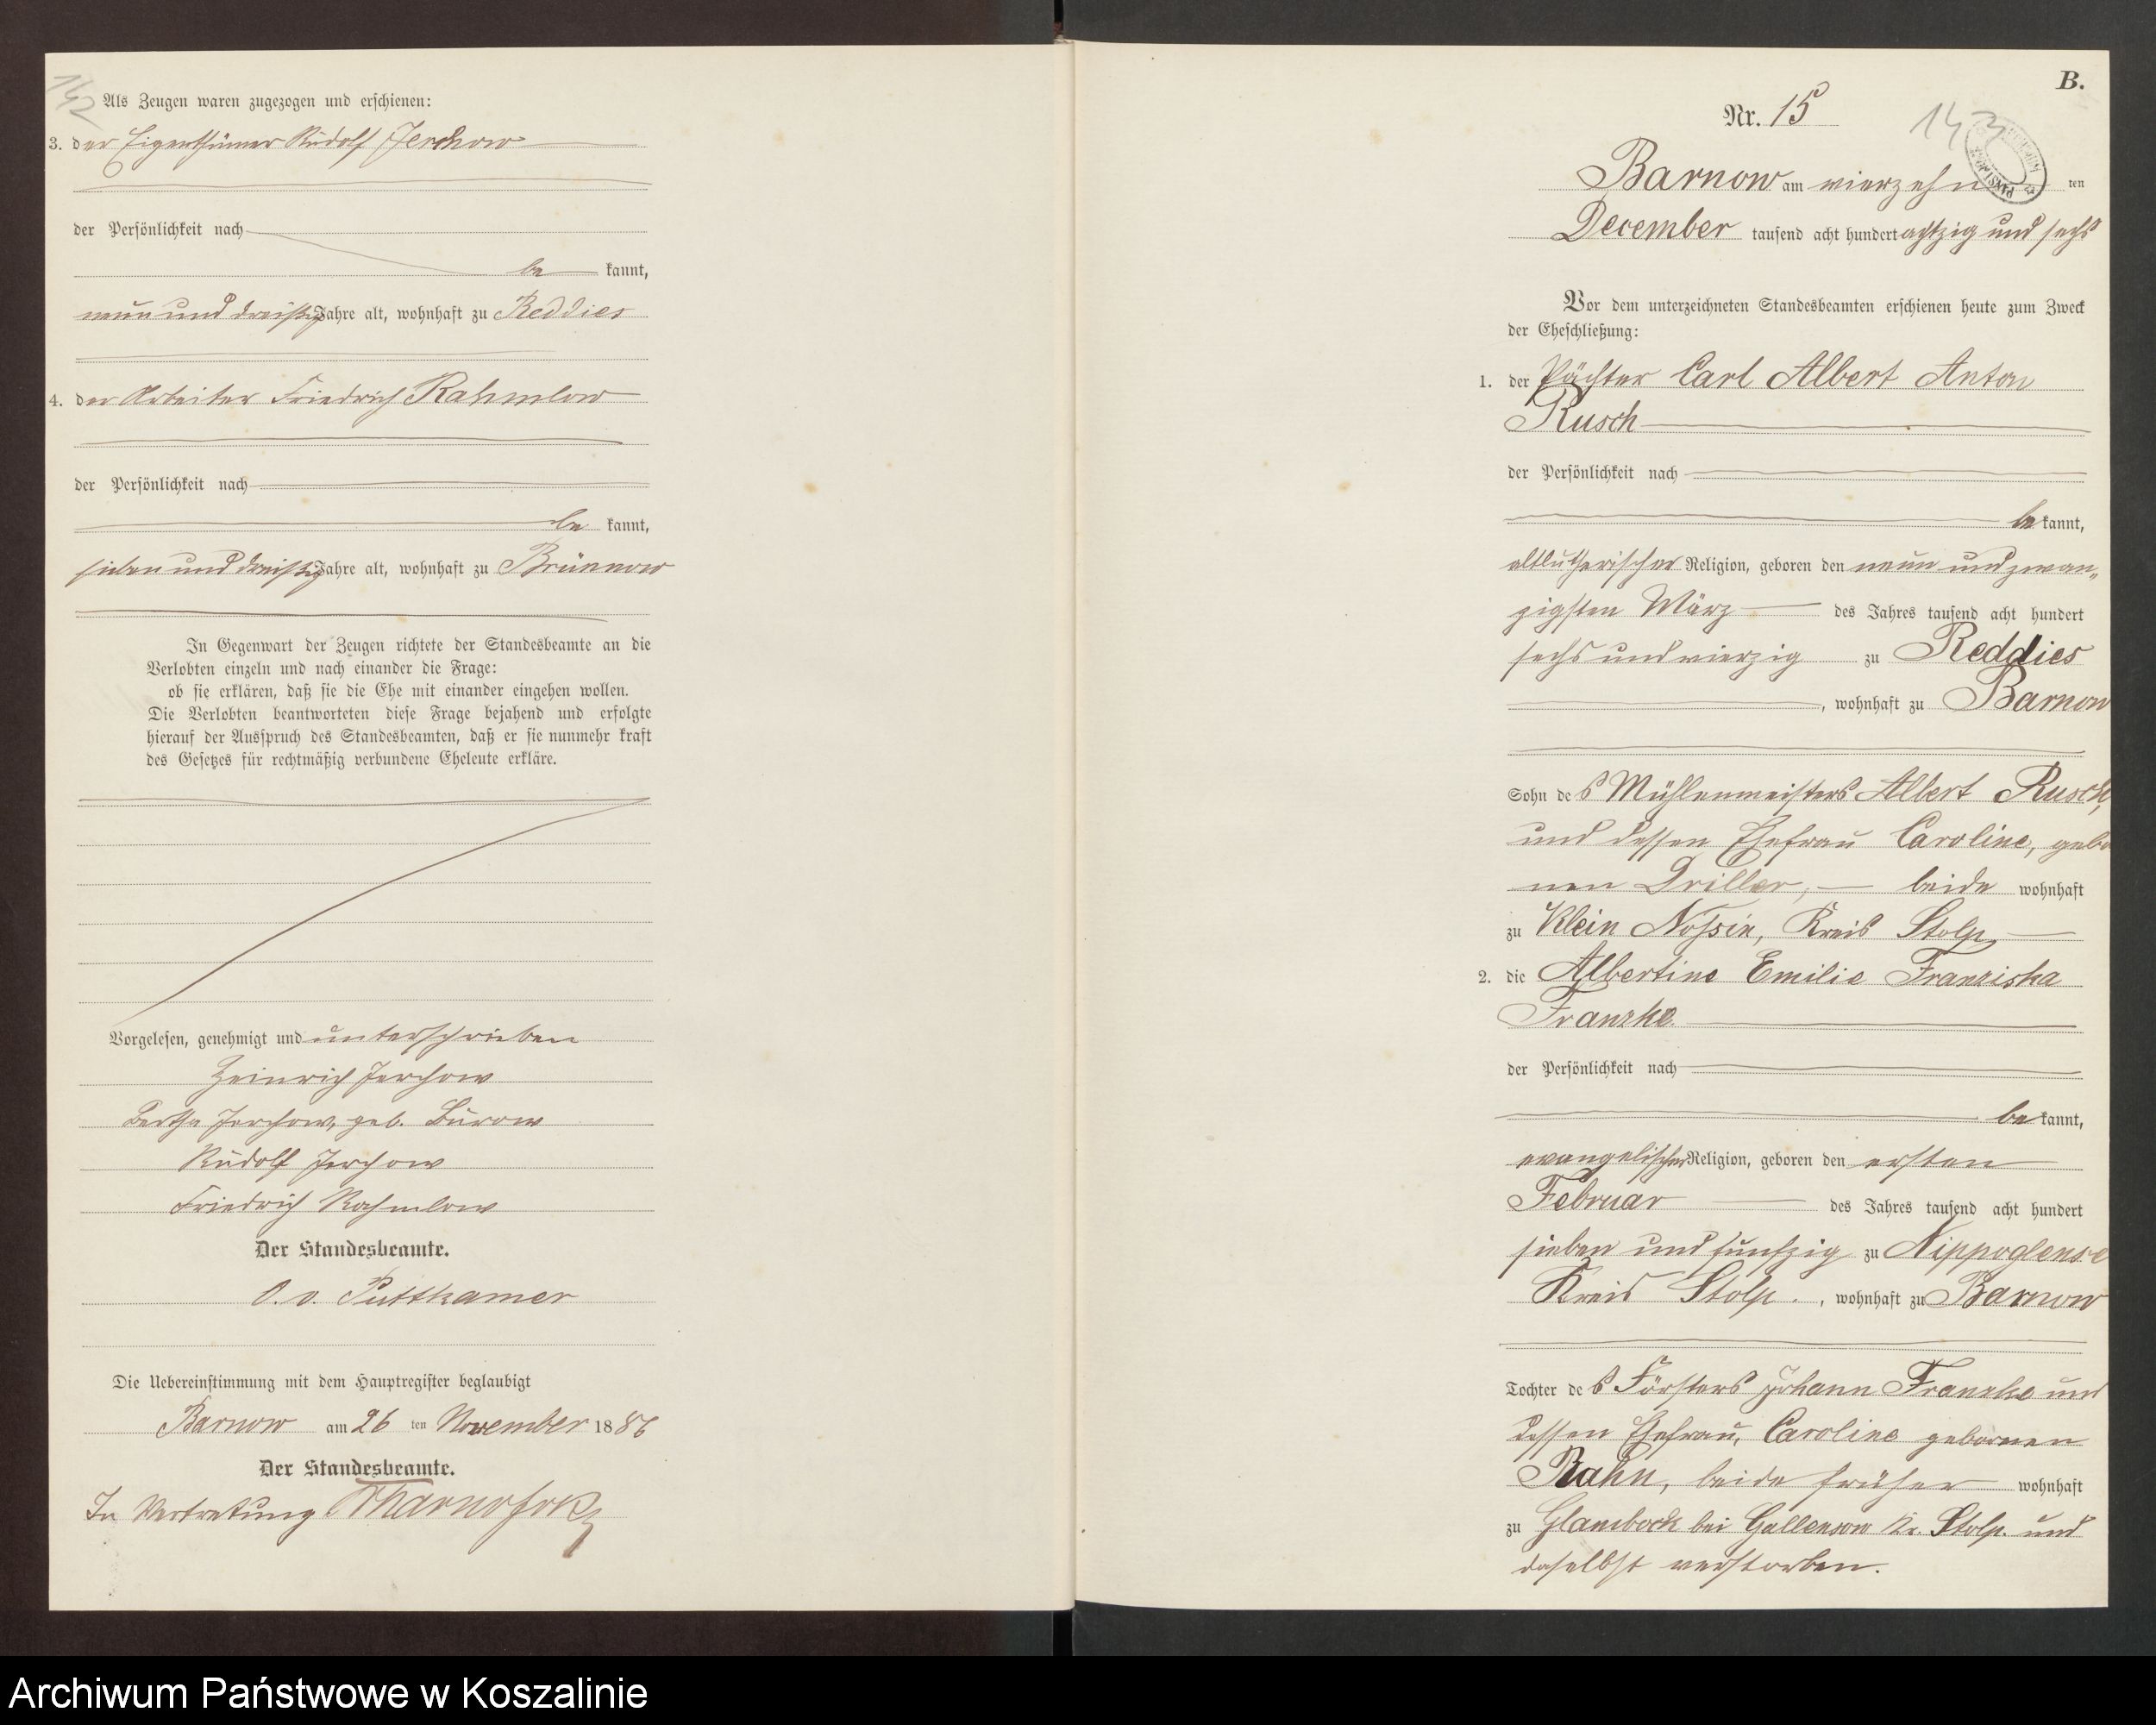 142
Als Zeugen waren zugezogen und erschienen:
3. der Eigenthümer Rudolf Jerchow
der Persönlichkeit nach
be kannt,
neun und dreißig Jahre alt, wohnhaft zu Reddies
4. der Arbeiter Friedrich Rahmlow
der Persönlichkeit nach
be kannt,
sieben und dreißig Jahre alt, wohnhaft zu Brünnow
In Gegenwart der Zeugen richtete der Standesbeamte an die
Verlobten einzeln und nach einander die Frage:
ob sie erklären, daß sie die Ehe mit einander eingehen wollen.
Die Verlobten beantworteten diese Frage bejahend und erfolgte
hierauf der Ausspruch des Standesbeamten, daß er sie nunmehr kraft
des Gesetzes für rechtmäßig verbundene Eheleute erkläre.
Vorgelesen, genehmigt und unterschrieben
Heinrich Jerchow
Bertha Jerchow, geb. Bürow
Rudolf Jerchow
Friedrich Rahmlow
Der Standesbeamte.
O. v. Puttkamer
Die Uebereinstimmung mit dem Hauptregister beglaubigt
Barnow am 26 ten November 1886
Der Standesbeamte.
In Vertretung
B.
Nr. 15
143
Barnow am vierzehn ten
December tausend acht hundert achtzig und sechs
Vor dem unterzeichneten Standesbeamten erschienen heute zum Zweck
der Eheschließung:
1. der Pächter Carl Albert Anton
Rusch
der Persönlichkeit nach
be kannt,
altlutherischer Religion, geboren den neun und zwan-
zigsten März des Jahres tausend acht hundert
sechs und vierzig zu Reddies
, wohnhaft zu Barnow
Sohn des Mühlenmeisters Albert Rusch,
und dessen Ehefrau Caroline, gebo
nen Driller, beide wohnhaft
zu Klein Nossin, Kreis Stolp
2. die Albertine Emilie Franziska
Franzke
der Persönlichkeit nach
be kannt,
evangelischer Religion, geboren den ersten
Februar des Jahres tausend acht hundert
sieben und funfzig zu Nippoglense
Kreis Stolp. , wohnhaft zu Barnow
Tochter des Försters Johann Franzke und
dessen Ehefrau, Caroline gebornen
Rahn, beide früher wohnhaft
zu Glambock bei Gallensow Kr. Stolp. und
daselbst verstorben.
Archiwum Państwowe w Koszalinie